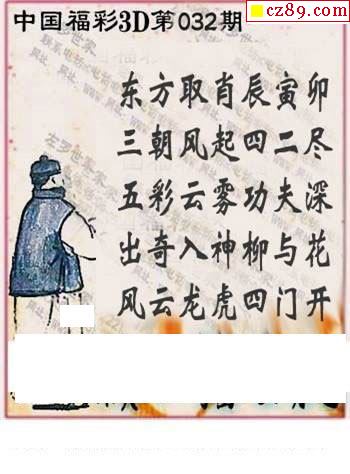 cz89.com
中国福彩3D第032期
东方取肖辰寅卯
三朝风起四二尽
五彩云雾功夫深
出奇入神柳与花
风云龙虎四门开